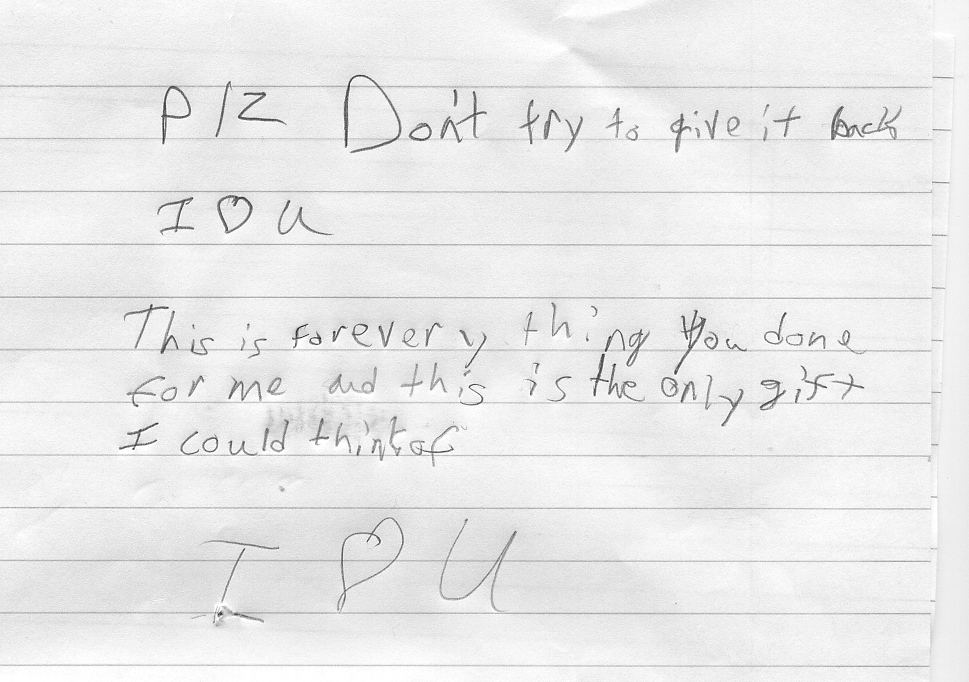 Plz Don't try to give it back
I ♡ U
This is for every thing you done
for me and this is the only gift
I could think of
I ♡ U